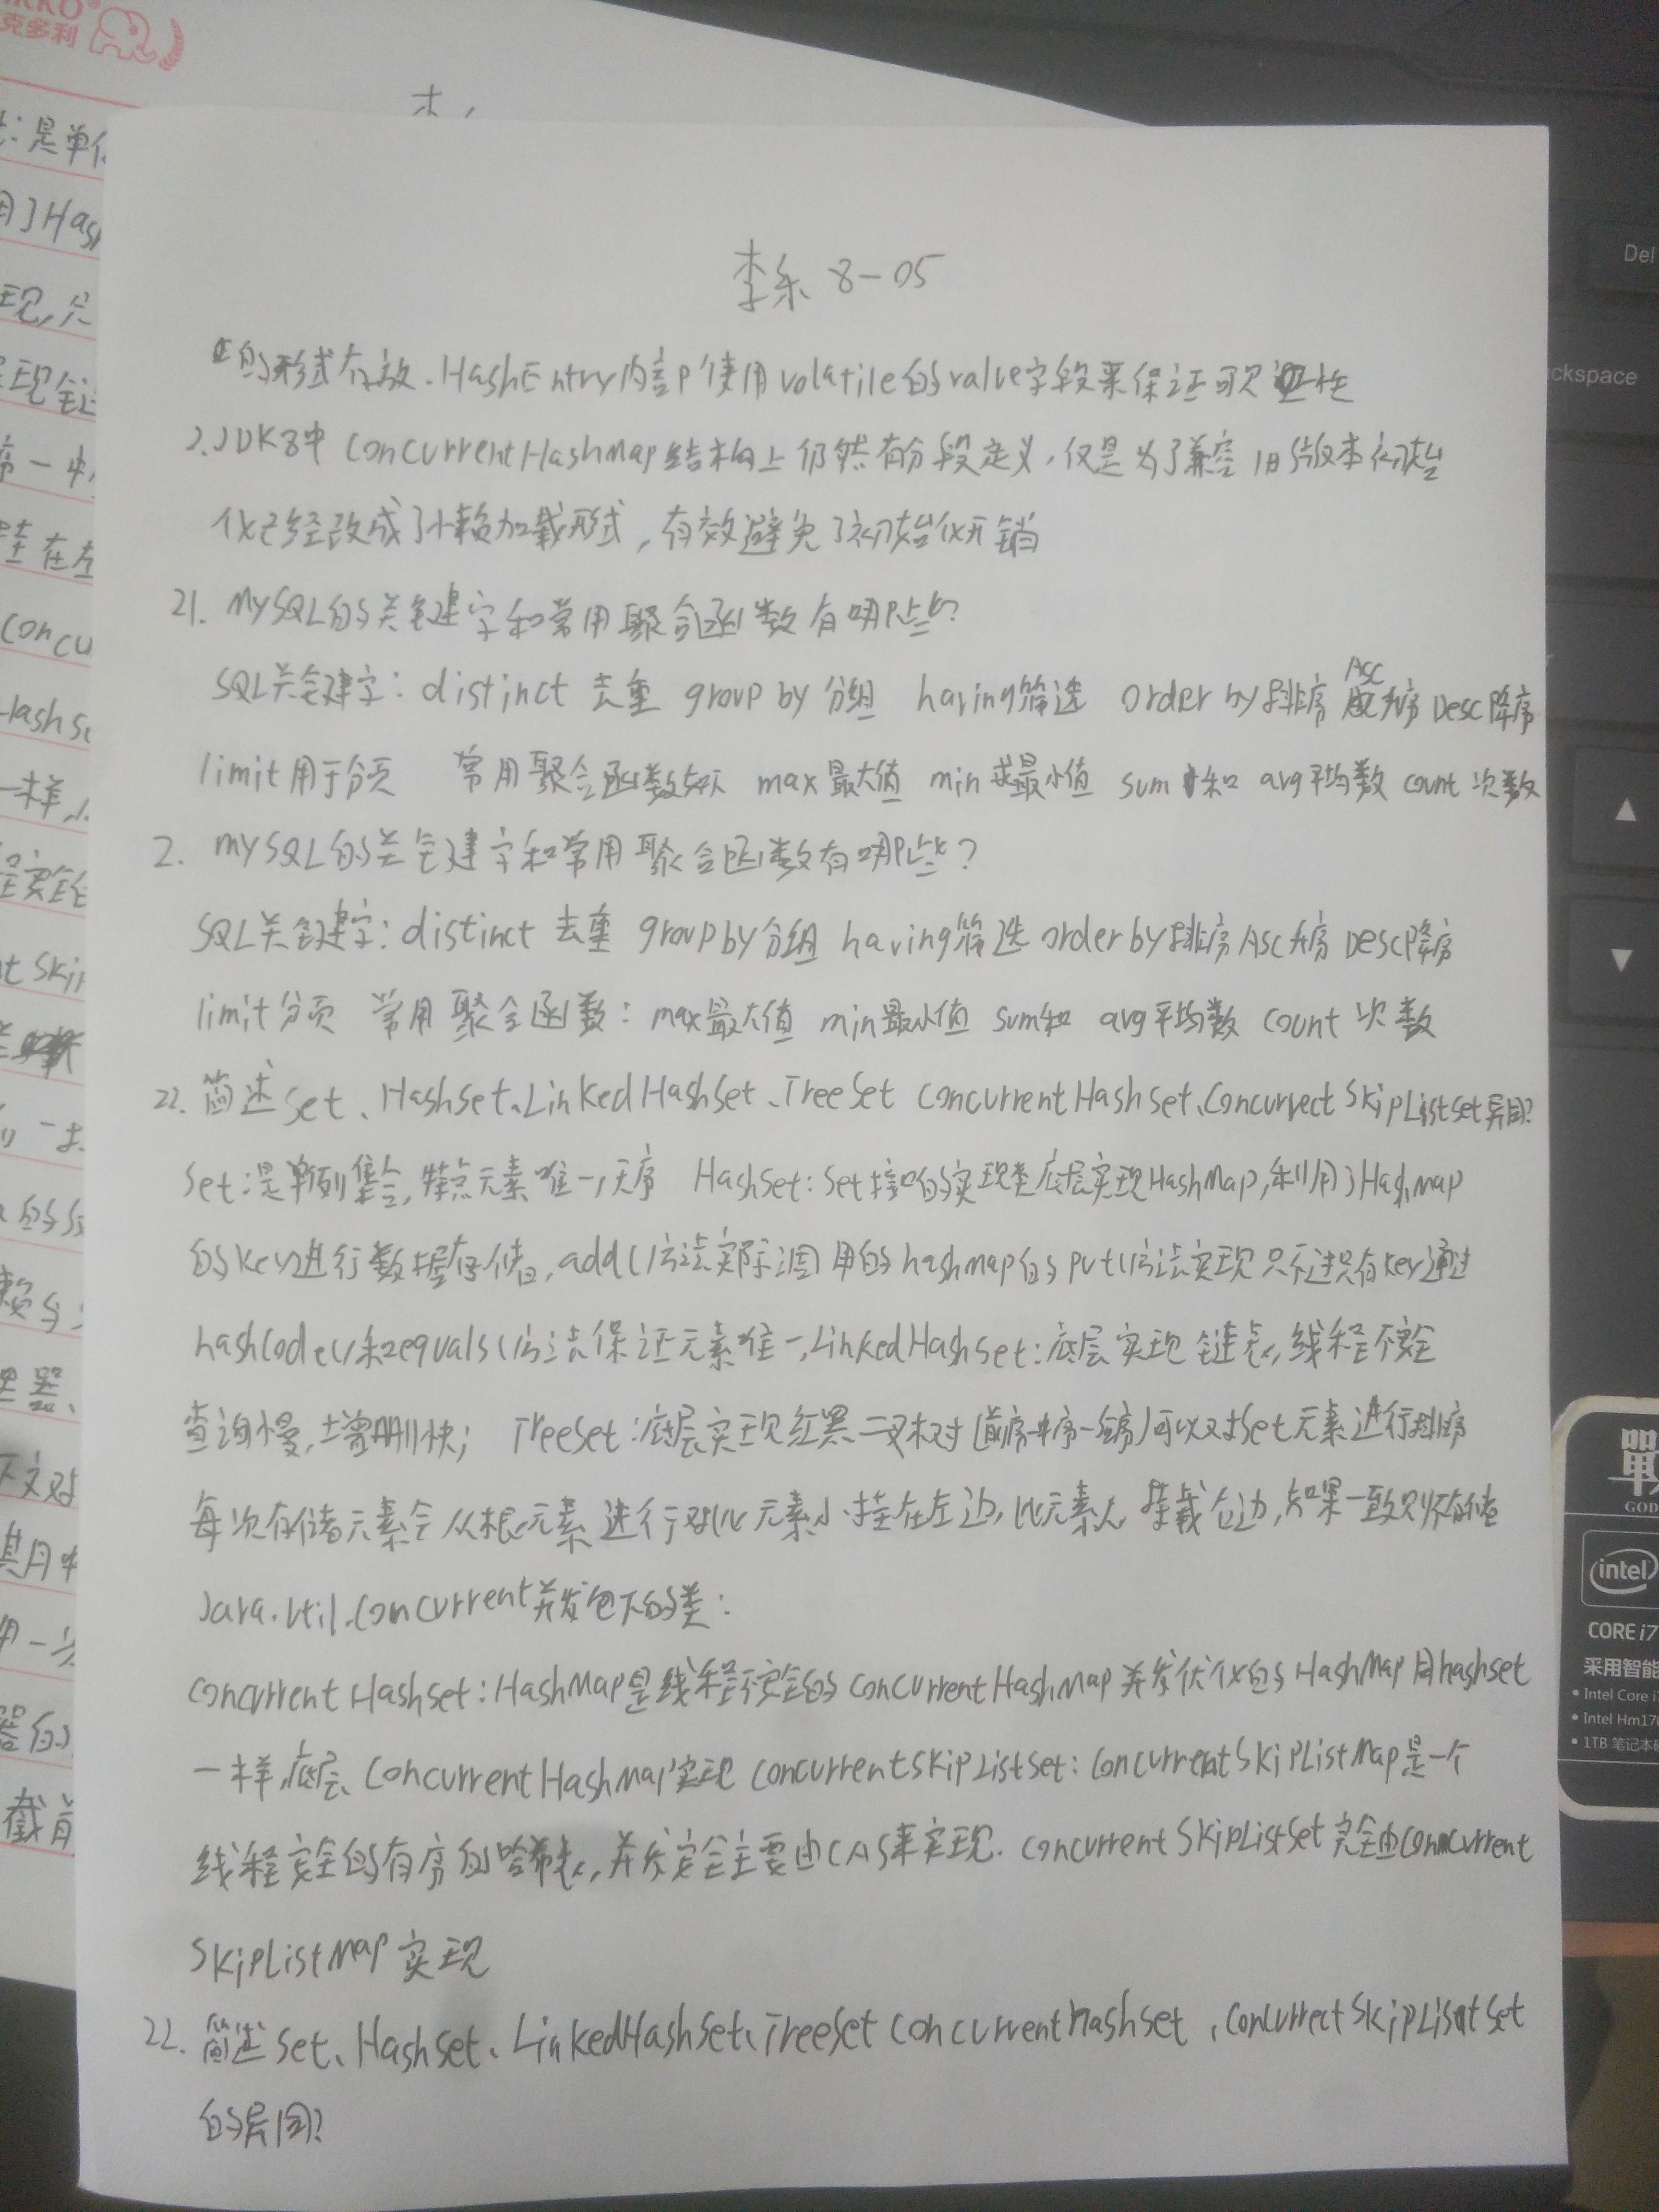 克多利
李乐 8-05
的形式存放.HashEntry内部使用volatile的value字段来保证可见性
2.JDK8中 ConcurrentHashMap结构上仍然有分段定义,仅是为了兼容旧版本初始
化已经改成了懒加载形式,有效避免了初始化开销
21. MySQL的关键字和常用聚合函数有哪些?
SQL关键字: distinct 去重 group by 分组 having筛选 order by排序 Asc升序 Desc降序
limit用于分页 常用聚合函数 max最大值 min求最小值 sum和 avg平均数 count次数
2. MySQL的关键字和常用聚合函数有哪些?
SQL关键字: distinct 去重 group by分组 having筛选 order by排序 Asc升序 Desc降序
limit分页 常用聚合函数: max最大值 min最小值 sum和 avg平均数 count 次数
22. 简述Set、HashSet、LinkedHashSet、TreeSet ConcurrentHashSet、ConcurrectSkipListSet异同?
Set:是单列集合,特点元素唯一,无序 HashSet: Set接口的实现类底层实现HashMap,利用了HashMap
的key进行数据存储,add()方法实际调用的hashMap的put()方法实现只不过只有key通过
hashCode()和equals()方法保证元素唯一,LinkedHashSet:底层实现链表,线程不安全
查询慢,增删快; TreeSet:底层实现红黑二叉树(前序-中序-后序)可以对Set元素进行排序
每次存储元素会从根元素进行对比元素小挂在左边,比元素大挂载右边,如果一致则不存储
Java.util.Concurrent并发包下的类:
ConcurrentHashSet:HashMap是线程不安全的ConcurrentHashMap并发优化的HashMap同hashset
一样,底层ConcurrentHashMap实现 ConcurrentSkipListSet: ConcurrentSkipListMap是一个
线程安全的有序的哈希表,并发安全主要由CAS来实现. ConcurrentSkipListSet完全由Concurrent
SkipListMap 实现
22. 简述Set、HashSet、LinkedHashSet、TreeSet ConcurrentHashSet、ConcurrectSkipListSet
的异同?
Del
ckspace
intel
CORE i7
采用智能
• Intel Core i
• Intel Hm17
• 1TB 笔记本